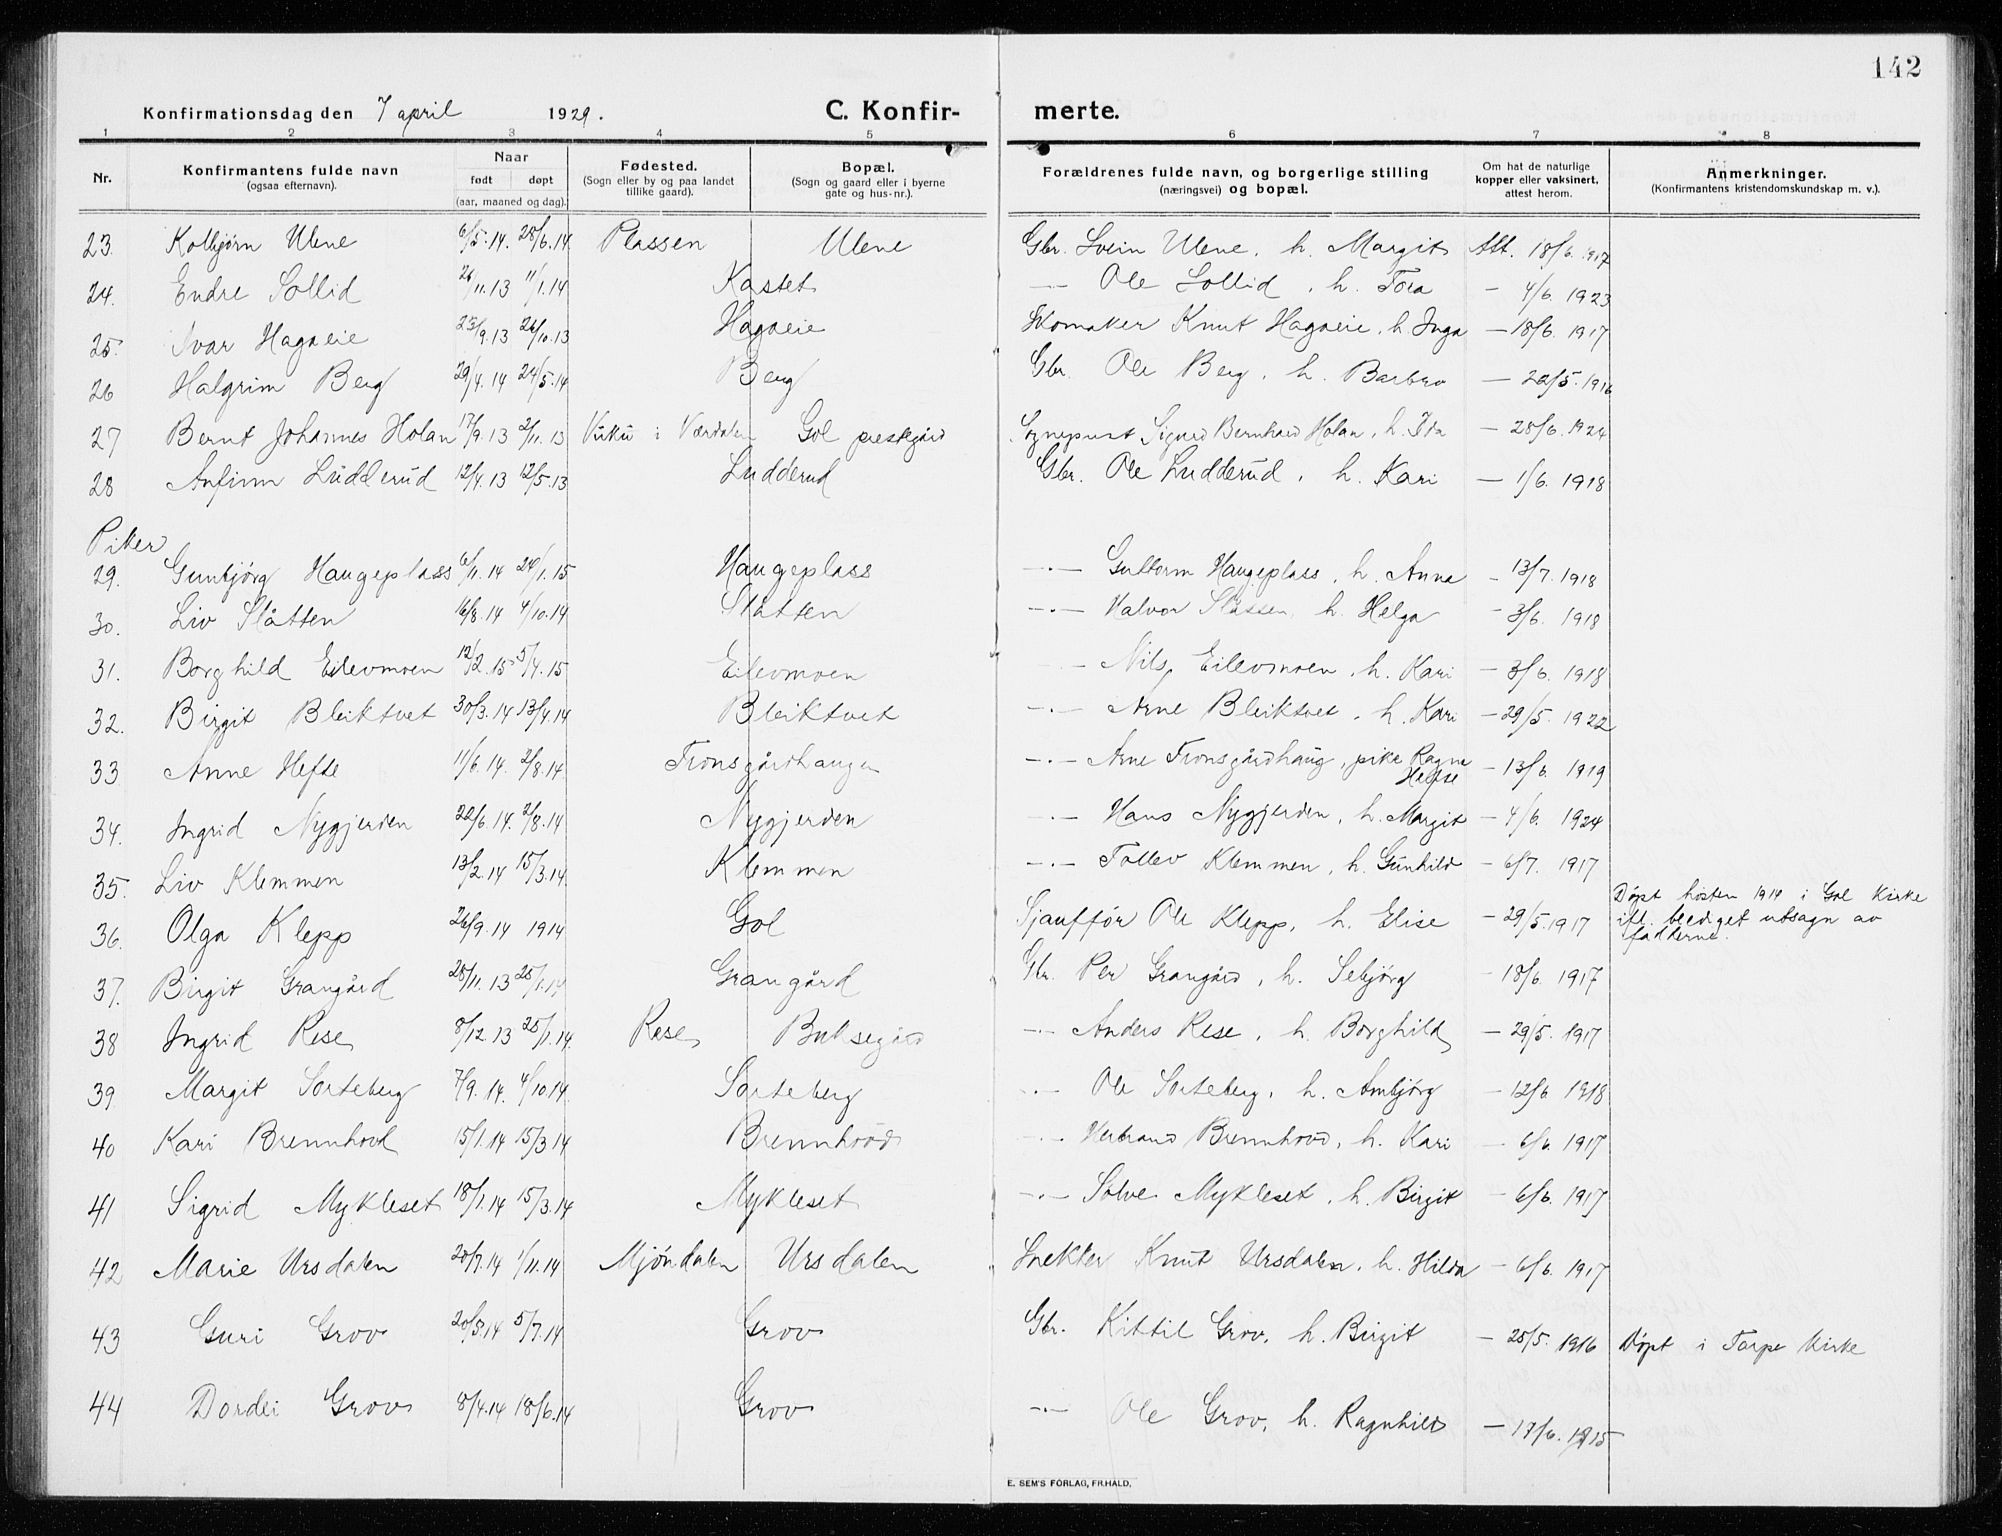 142
Konfirmationsdag den 7 april 1929. C. Konfir- merte.
1 2 3 4 5 6 7 8
Nr. Konfirmantens fulde navn (ogsaa efternavn). Naar født døpt (aar, maaned og dag). Fødested. (Sogn eller by og paa landet tillike gaard). Bopæl. (Sogn og gaard eller i byerne gate og hus-nr.). Forældrenes fulde navn, og borgerlige stilling (næringsvei) og bopæl. Om hat de naturlige kopper eller vaksinert, attest herom. Anmerkninger. (Konfirmantens kristendomskundskap m. v.).
23. Kolbjørn Ulene 6/5.14. 28/6.14. Plassen Ulene Gbr. Svein Ulene, h. Margit Att. 18/6 1917
24. Endre Sollid 26/11.13 11/1.14 Kastet — Ole Sollid, h. Tora - 4/6. 1923
25. Ivar Hagaeie 25/9.13 26/10.13 Hagaeie Skomaker Knut Hagaeie, h. Inga — 18/6. 1917
26 Halgrim Berg 29/4.14 24/5.14 Berg Gbr. Ole Berg, h. Barbro — 22/5. 1916
27 Bernt Johannes Holan 17/9.13 2/11.13 Vuku i Værdalen Gol prestegård Sogneprest Sigurd Bernhard Holan, h. Ida - 28/6. 1924
28 Anfinn Ludderud 12/4.13 12/5.13 Ludderud Gbr. Ole Ludderud, h. Kari — 1/6. 1918
Piker
29. Gunbjørg Haugeplass 6/11.14 24/1.15 Haugeplass —·— Guttorm Haugeplass, h. Anna - 13/7. 1918
30. Liv Slåtten 16/8.14 4/10.14 Slåtten —·— Halvor Slåtten, h. Helga - 3/6. 1918
31. Borghild Eilevmoen 12/2.15 5/4.15 Eilevmoen — Nils Eilevmoen, h. Kari - 3/6. 1918
32. Birgit Bleiktvet 30/3.14 13/4.14 Bleiktvet —·— Arne Bleiktvet, h. Kari — 29/5. 1922
33 Anne Hefte 11/6.14. 2/8.14 Tronsgårdhaugen —·— Arne Tronsgårdhaug, pike Ragna Hefte - 13/6 1919
34. Ingrid Nygjerden 22/6.14. 2/8.14 Nygjerden —·— Hans Nygjerden, h. Margit - 4/6. 1924
35. Liv Klemmen 13/2.14 15/3.14. Klemmen —·— Tollev Klemmen, h. Gunhild - 6/7. 1917
36. Olga Klepp 26/9.14 1914 Gol Sjauffør Ole Klepp, h. Elise - 29/5.1917 Døpt høsten 1914 i Gol kirke
ifl. beediget utsagn av
fadderne.
37. Birgit Grangård 28/11.13 25/1.14 Grangård Gbr. Per Grangård, h. Sebjørg - 18/6. 1917
38 Ingrid Rese 8/12.13 25/1.14. Rese Buksegård —·— Anders Rese, h. Borghild — 29/5. 1917
39. Margit Sorteberg 7/9.14. 4/10.14 Sorteberg —·— Ole Sorteberg, h. Ambjørg — 12/6 1918
40 Kari Brennhovd 15/1.14 15/3.14 Brennhovd —·— Herbrand Brennhovd, h. Kari - 6/6. 1917
41 Sigrid Mykleset 18/1.14 15/3.14 Mykleset —·— Solve Mykleset, h. Birgit - 6/6. 1917
42 Marie Ursdalen 20/7.14 1/11.14 Mjøndalen Ursdalen Snekker Knut Ursdalen, h. Hilda - 6/6. 1917
43 Guri Grov 20/5.14 5/7.14 Grov Gbr. Kittil Grov, h. Birgit - 25/5. 1916 Døpt i Torpe kirke
44 Dordei Grov 8/4.14 18/6.14 Grov —·— Ole Grov, h. Ragnhild — 17/6. 1915
E. SEM'S FORLAG, FR.HALD.